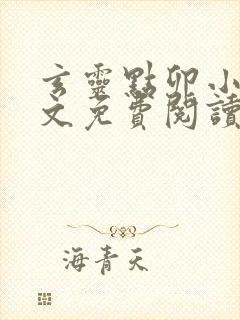 玄靈點卯小
文免費閱讀
海青天